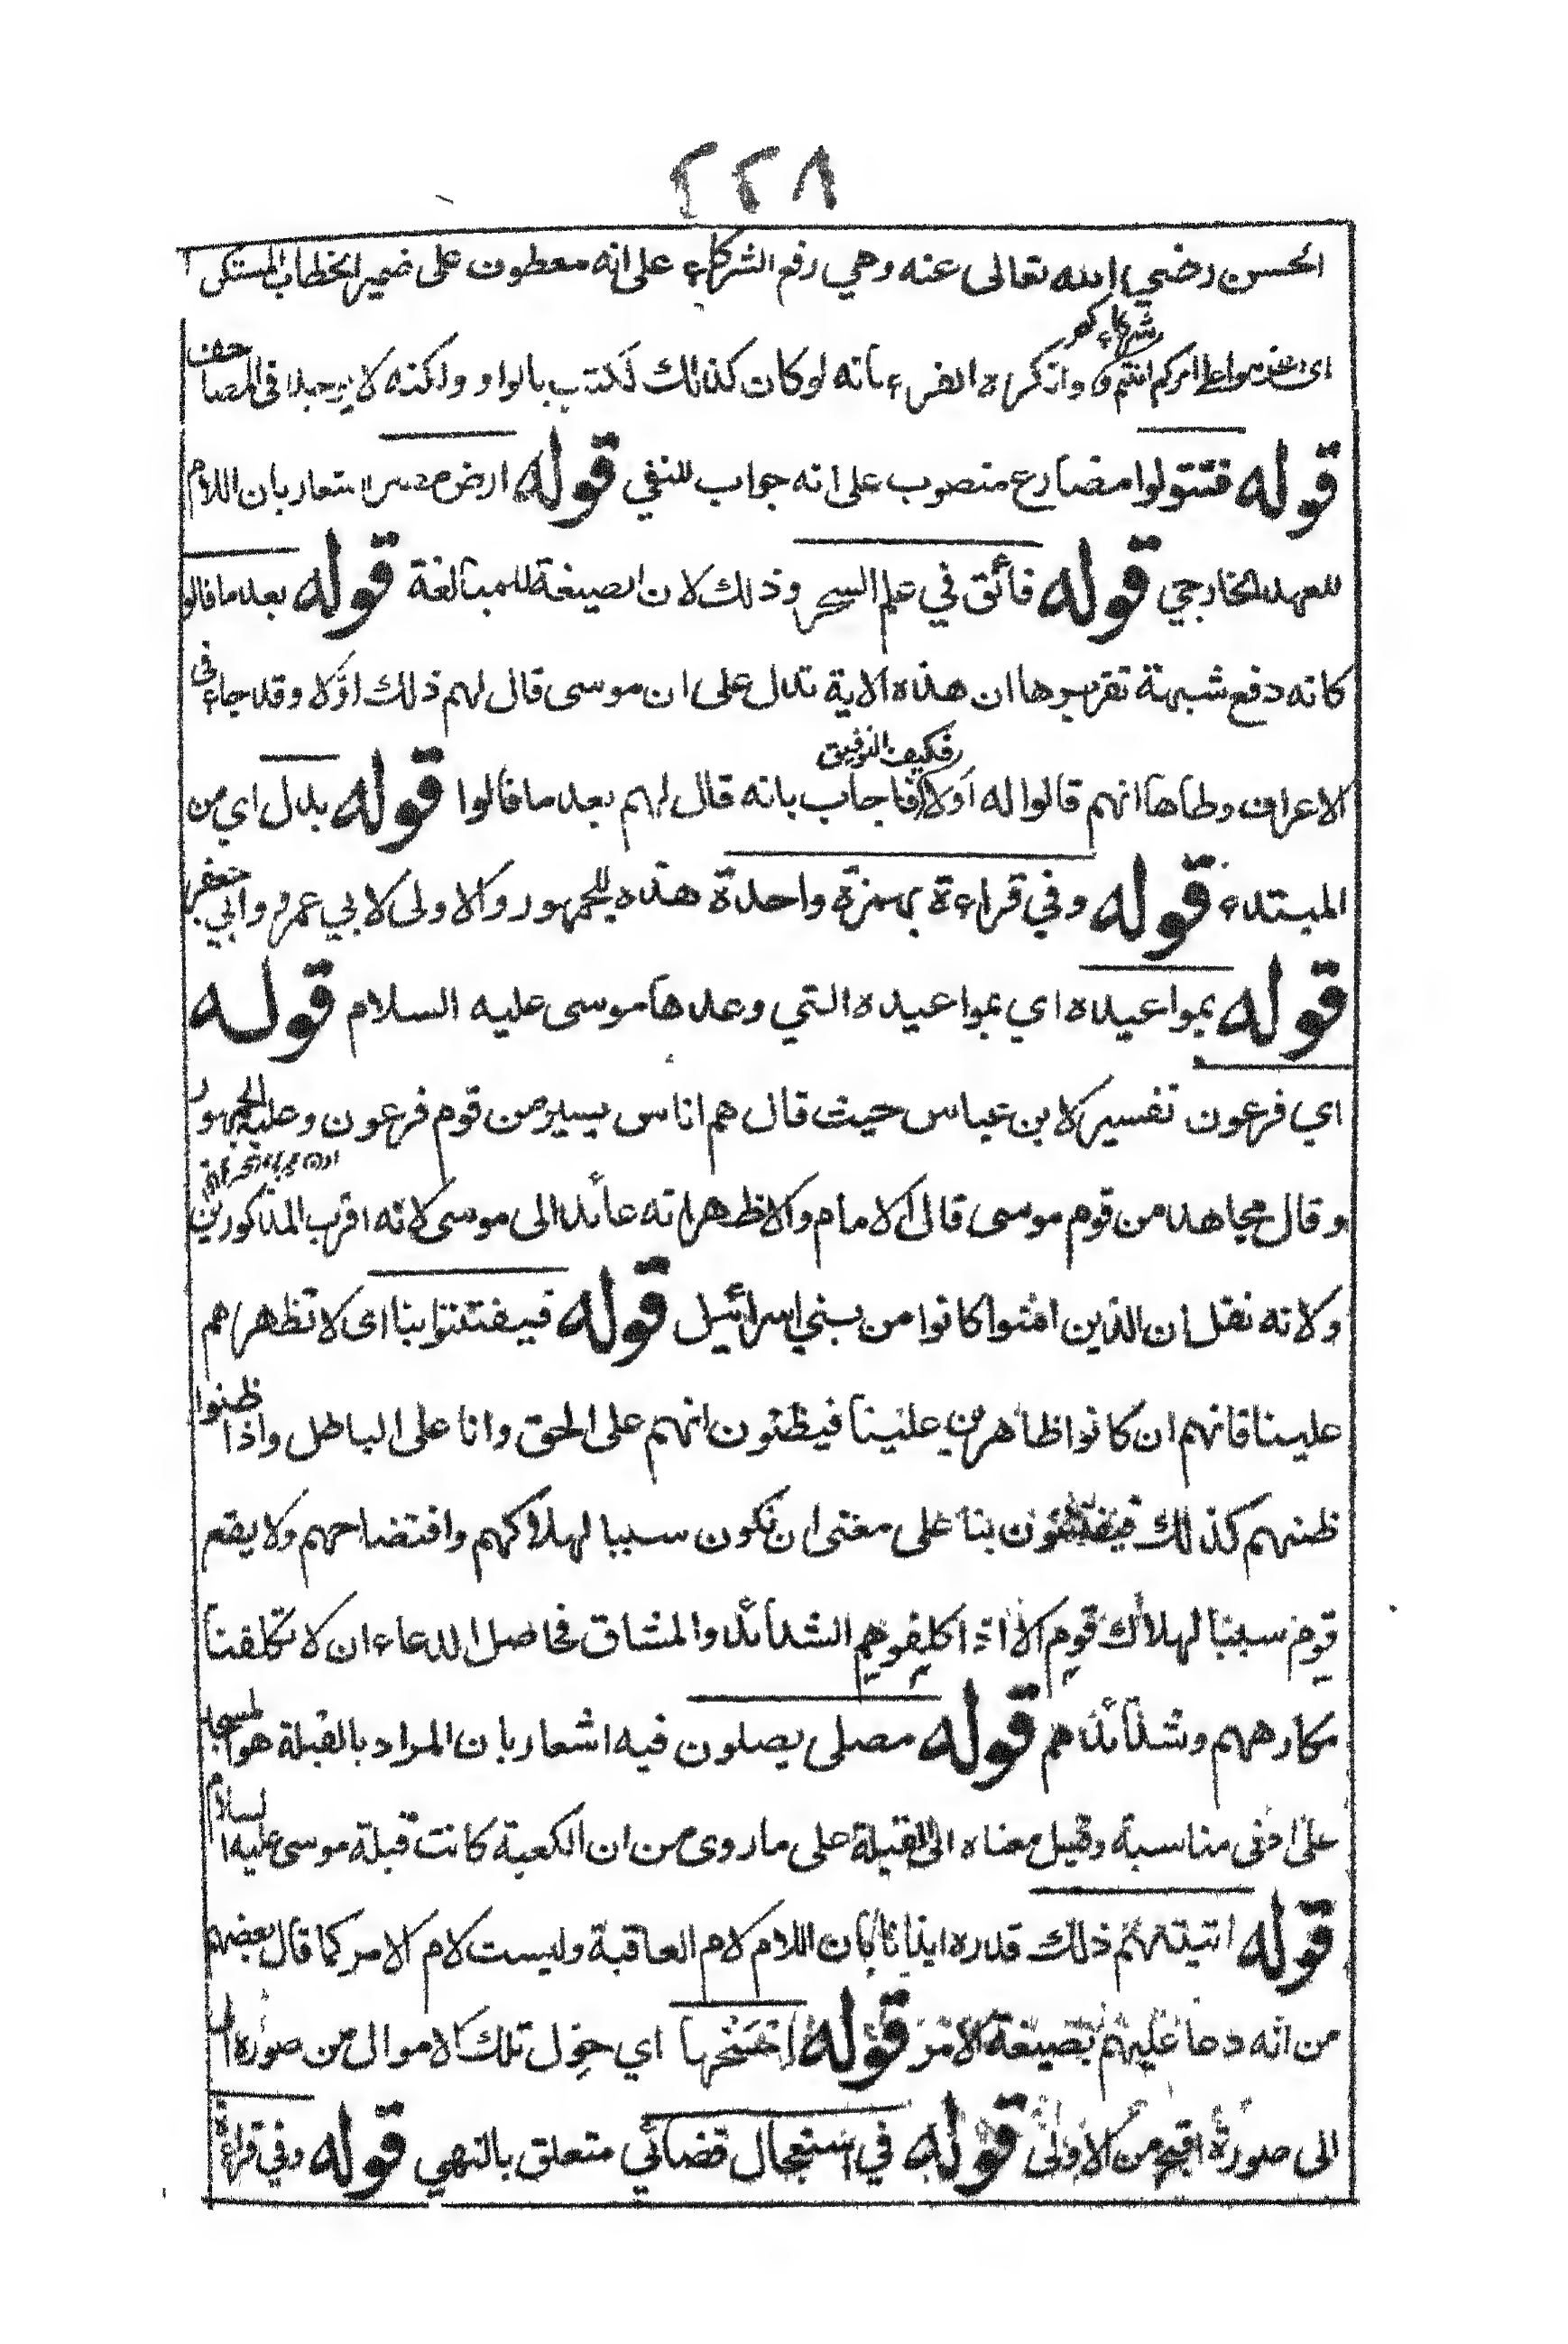 ٢٢٨
الحسن رضي الله تعالى عنه وهي رفع الشركاء على انه معطوف على ضمير الخطاب المستكن
امركم انتم وشركاءكم وانكره الفراء بأنه لو كان كذالك لكتب بالواو ولكنه لا يوجد في المصاحف
قوله فتتولوا مضارع منصوب على انه جواب للنفي قوله ارض مصر اشعار بان اللام
للعهد الخارجي قوله فائق في علم السحر وذلك لان الصيغة للمبالغة قوله بعد ما قالوا
كانه دفع شبهة تقريرها ان هذه الاية تدل على ان موسى قال لهم ذلك اوّلا وقد جاء في
الاعراف وطٰهٰ انهم قالوا له اولا فكيف التوفيق فاجاب بانه قال لهم بعد ما قالوا قوله بدل اي من
المبتدء قوله وفي قراءة بهمزة واحدة هذه للجمهور والاولى لابي عمرو وابي جعفر
قوله بمواعيده اي بمواعيده التي وعدها موسى عليه السلام قوله
اي فرعون تفسير لابن عباس حيث قال هم اناس يسير من قوم فرعون وعليه الجمهور
وقال مجاهد من قوم موسى قال الامام والاظهر انه عائد الى موسى لانه اقرب المذكورين
ولانه نقل ان الذين امنوا كانوا من بني اسرائيل قوله فيفتتنوا بنا اى لا تظهرهم
علينا فانهم ان كانوا ظاهرين علينا فيظنون انهم على الحق وانا على الباطل واذا ظنوا
ظنهم كذلك فيفتتنون بنا على معنى ان نكون سببا لهلاكهم وافتضاحهم ولا يقع
قوم سببا لهلاك قوم الا اذا كلفوهم الشدائد والمشاق فحاصل الدعاء ان لا تكلفنا
مكارههم وشدائدهم قوله مصلى يصلون فيه اشعار بان المراد بالقبلة هو المسجد
على ادنى مناسبة وقيل معناه الى القبلة على ما روى من ان الكعبة كانت قبلة موسى عليه السلام
قوله اتيتهم ذلك قدره ايذانا بان اللام لام العاقبة وليست لام الامر كما قال بعضهم
من انه دعا عليهم بصيغة الامر قوله امسخها اي حوّل تلك الاموال من صورها
الى صورة اقبح من الاولى قوله في استعجال قضائي متعلق بالنهي قوله وفي قراءة